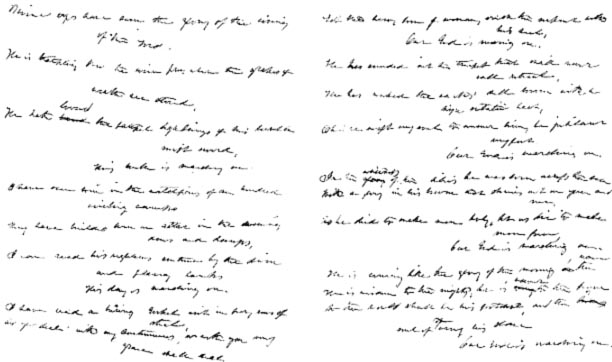 Mine eyes have seen the glory of the coming
of the Lord.
He is trampling out the wine press, where the grapes of
wrath are stored,
He hath loosed the fateful lightnings of his terrible
swift sword,
His truth is marching on.
I have seen him in the watchfires of an hundred
circling camps
They have builded him an altar in the evening
dews and damps,
I can read his righteous sentence by the dim
and flaring lamps
His day is marching on.
I have read a burning Gospel writ in fiery rows of
steel,
As ye deal with my contemners, so with you my
grace shall deal
Let the hero, born of woman, crush the serpent with
his heel,
Our God is marching on.
He has sounded out the trumpet that shall never
call retreat,
He has waked the earth's dull sorrow with a
high ecstatic beat,
Oh! be swift my soul to answer him, be jubilant
my feet
Our God is marching on.
In the whiteness of the lilies he was born across the sea
With a glory in his bosom that shines out on you and
me,
As he died to make men holy, let us die to make
men free,
Our God is marching on.
He is coming like the glory of the morning on the wave
He is wisdom to the mighty, he is succour to the brave
So the world shall be his footstool, and the soul
of Time his slave
Our God is marching on.